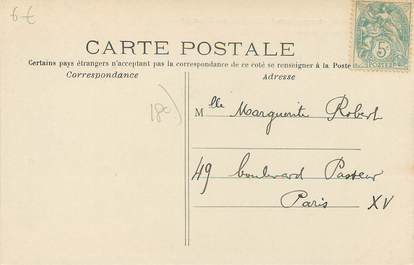 6€
CARTE POSTALE
Certains pays étrangers n'acceptant pas la correspondance de ce coté se renseigner à la Poste
Correspondance
Adresse
Mlle Marguerite Robert
49 boulevard Pasteur
Paris XV
5c